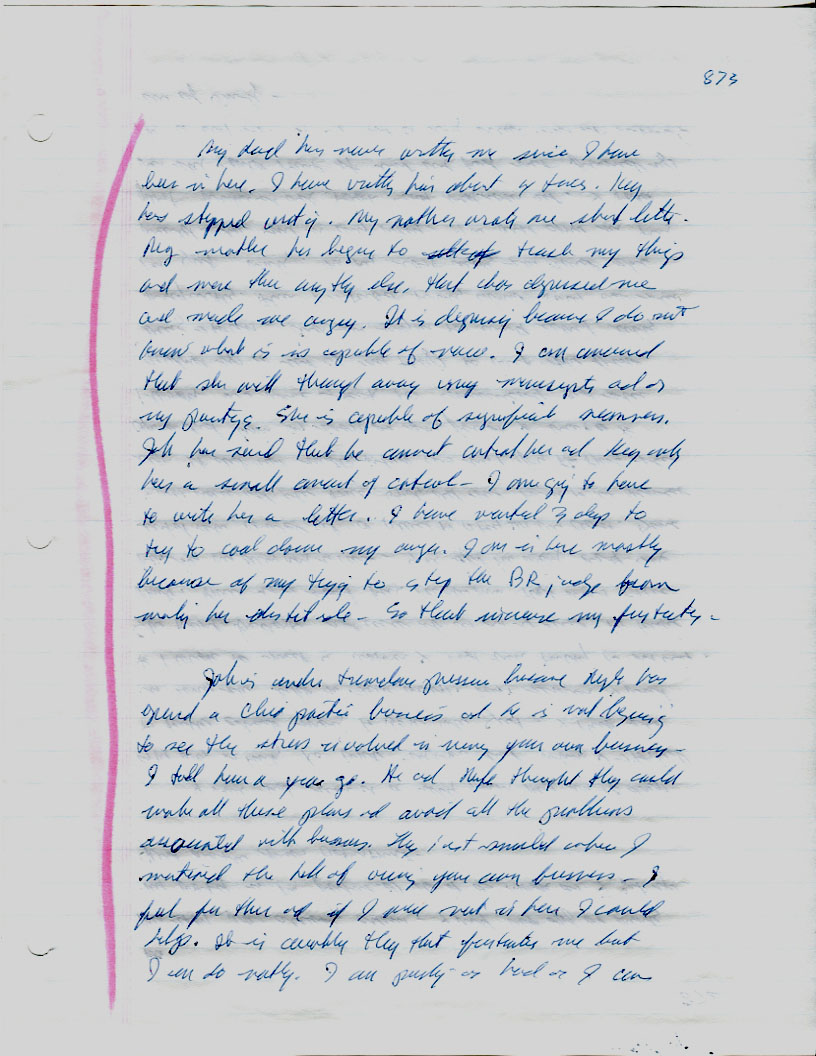 873
My dad has never written me since I have
been in here. I have written him about 4 times. Meg
has stopped writing. My mother wrote me short letter.
Meg mother has begun to trash my things
and more than anything else, that has depressed me
and made me angry. It is because I do not
know what is is capable of more. I am
that she will away my manuscripts
my paintings. She is capable of significant
John has said that he cannot control her and Meg only
has a small amount of control - I am going to have
to write her a letter. I have waited 3 days to
try to cool down my anger. I am in here mostly
because of my trying to stop the BR judge from
making her destitute - So that increase my frustration -
John is under tremendous pressure because
opened a Chiropractic business and he is
to see the stress involved in your own business -
I told him a year ago. He and thought they could
make all these plans and avoid all the problems
associated with business. They just smiled when I
mentioned the hell of owning your own business - I
feel for them and if I were not in here I could
help. It is another thing that frustrates me but
I can do nothing. I am as hard as I can